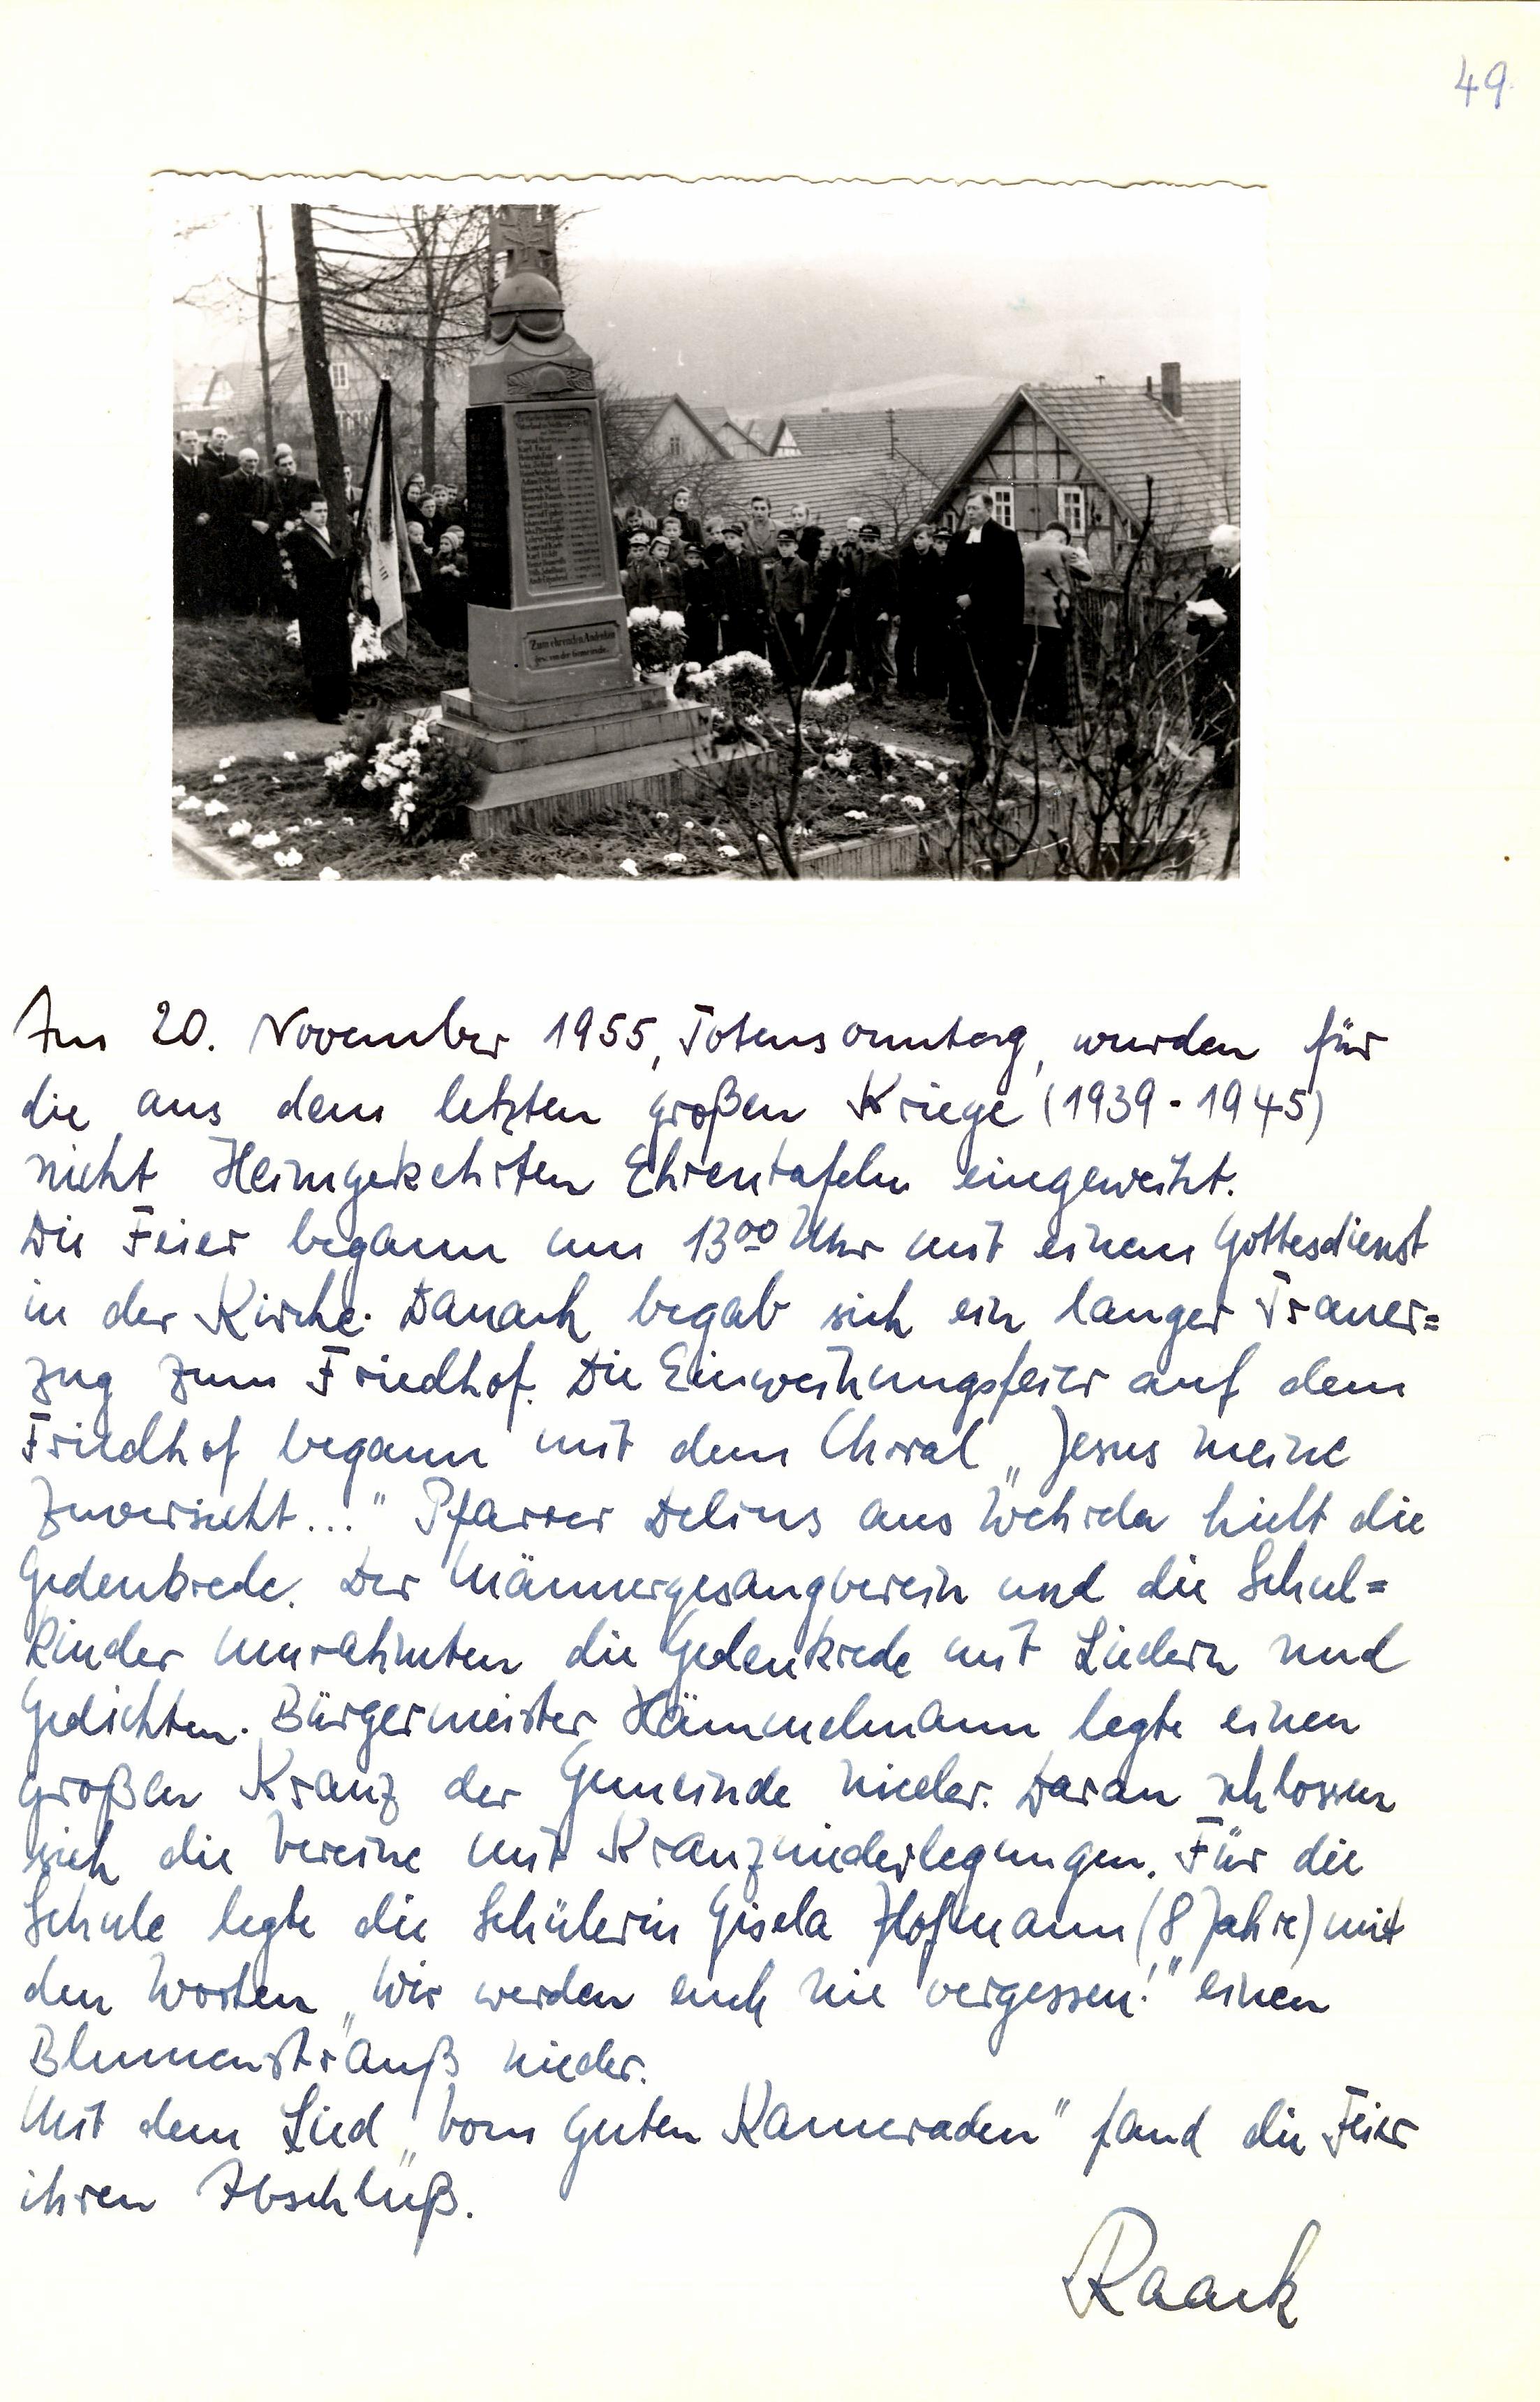 49.
Zum ehrenden Andenken
gew. von der Gemeinde.
Am 20. November 1955, Totensonntag, wurden für
die aus dem letzten großen Kriege (1939-1945)
nicht Heimgekehrten Ehrentafeln eingeweiht.
Die Feier begann um 13⁰⁰ Uhr mit einem Gottesdienst
in der Kirche. Danach begab sich ein langer Trauer=
zug zum Friedhof. Die Einweihungsfeier auf dem
Friedhof begann mit dem Choral „Jesus meine
Zuversicht..." Pfarrer Delius aus Wehrda hielt die
Gedenkrede. Der Männergesangverein und die Schul=
kinder umrahmten die Gedenkrede mit Liedern und
Gedichten. Bürgermeister Hämmelmann legte einen
großen Kranz der Gemeinde nieder. Daran schlossen
sich die Vereine mit Kranzniederlegungen. Für die
Schule legte die Schülerin Gisela Hofmann (8 Jahre) mit
den Worten „Wir werden euch nie vergessen!" einen
Blumenstrauß nieder.
Mit dem Lied „Vom guten Kameraden" fand die Feier
ihren Abschluß.
Raack